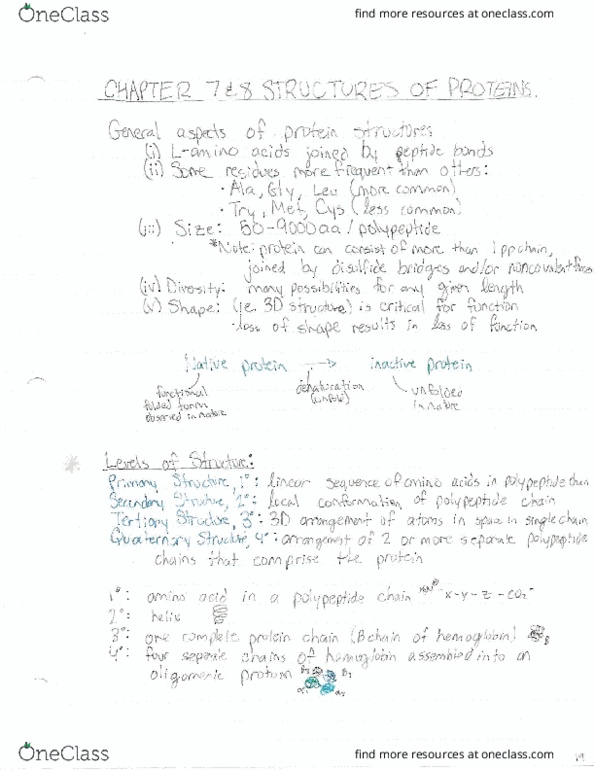 OneClass
find more resources at oneclass.com
CHAPTER 7&8 STRUCTURES OF PROTEINS.
General aspects of protein structures:
(i) L-amino acids joined by peptide bonds
(ii) Some residues more frequent than others:
· Ala, Gly, Leu (more common)
· Try, Met, Cys (less common)
(iii) Size: 50-9000aa/polypeptide
*Note: protein can consist of more than 1 ppchain,
joined by disulfide bridges and/or noncovalent forces
(iv) Diversity: many possibilities for any given length
(v) Shape: (ie. 3D structure) is critical for function
· loss of shape results in loss of function
Native protein → inactive protein
functional
folded form
observed in nature
denaturation
(unfold)
unfolded
in nature
* Levels of Structure:
Primary Structure, 1°: linear sequence of amino acids in polypeptide chain
Secondary Structure, 2°: local conformation of polypeptide chain
Tertiary Structure, 3°: 3D arrangement of atoms in space in single chain
Quaternary Structure, 4°: arrangement of 2 or more separate polypeptide
chains that comprise the protein
1°: amino acid in a polypeptide chain -x-y-z-co₂⁻
2°: helix
3°: one complete protein chain (B chain of hemoglobin) B
4°: four seperate chains of hemoglobin assembled into an
oligomeric protein
OneClass
find more resources at oneclass.com
19